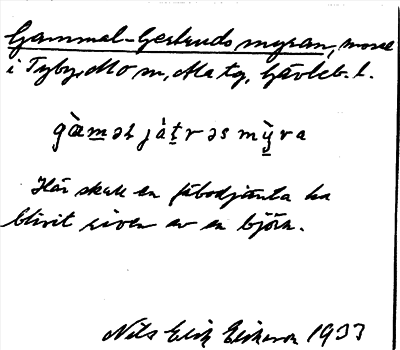 Gammal-Gertruds myran, mosse
i Tyby, Mo sn, Ala tg, Gävleb. l.
gàm̲ǝɫ jàt̲rǝs mỳ̲ra
Här skall en fäbodjänta ha
blivit riven av en björn.
Nils Erik Eriksson 1933